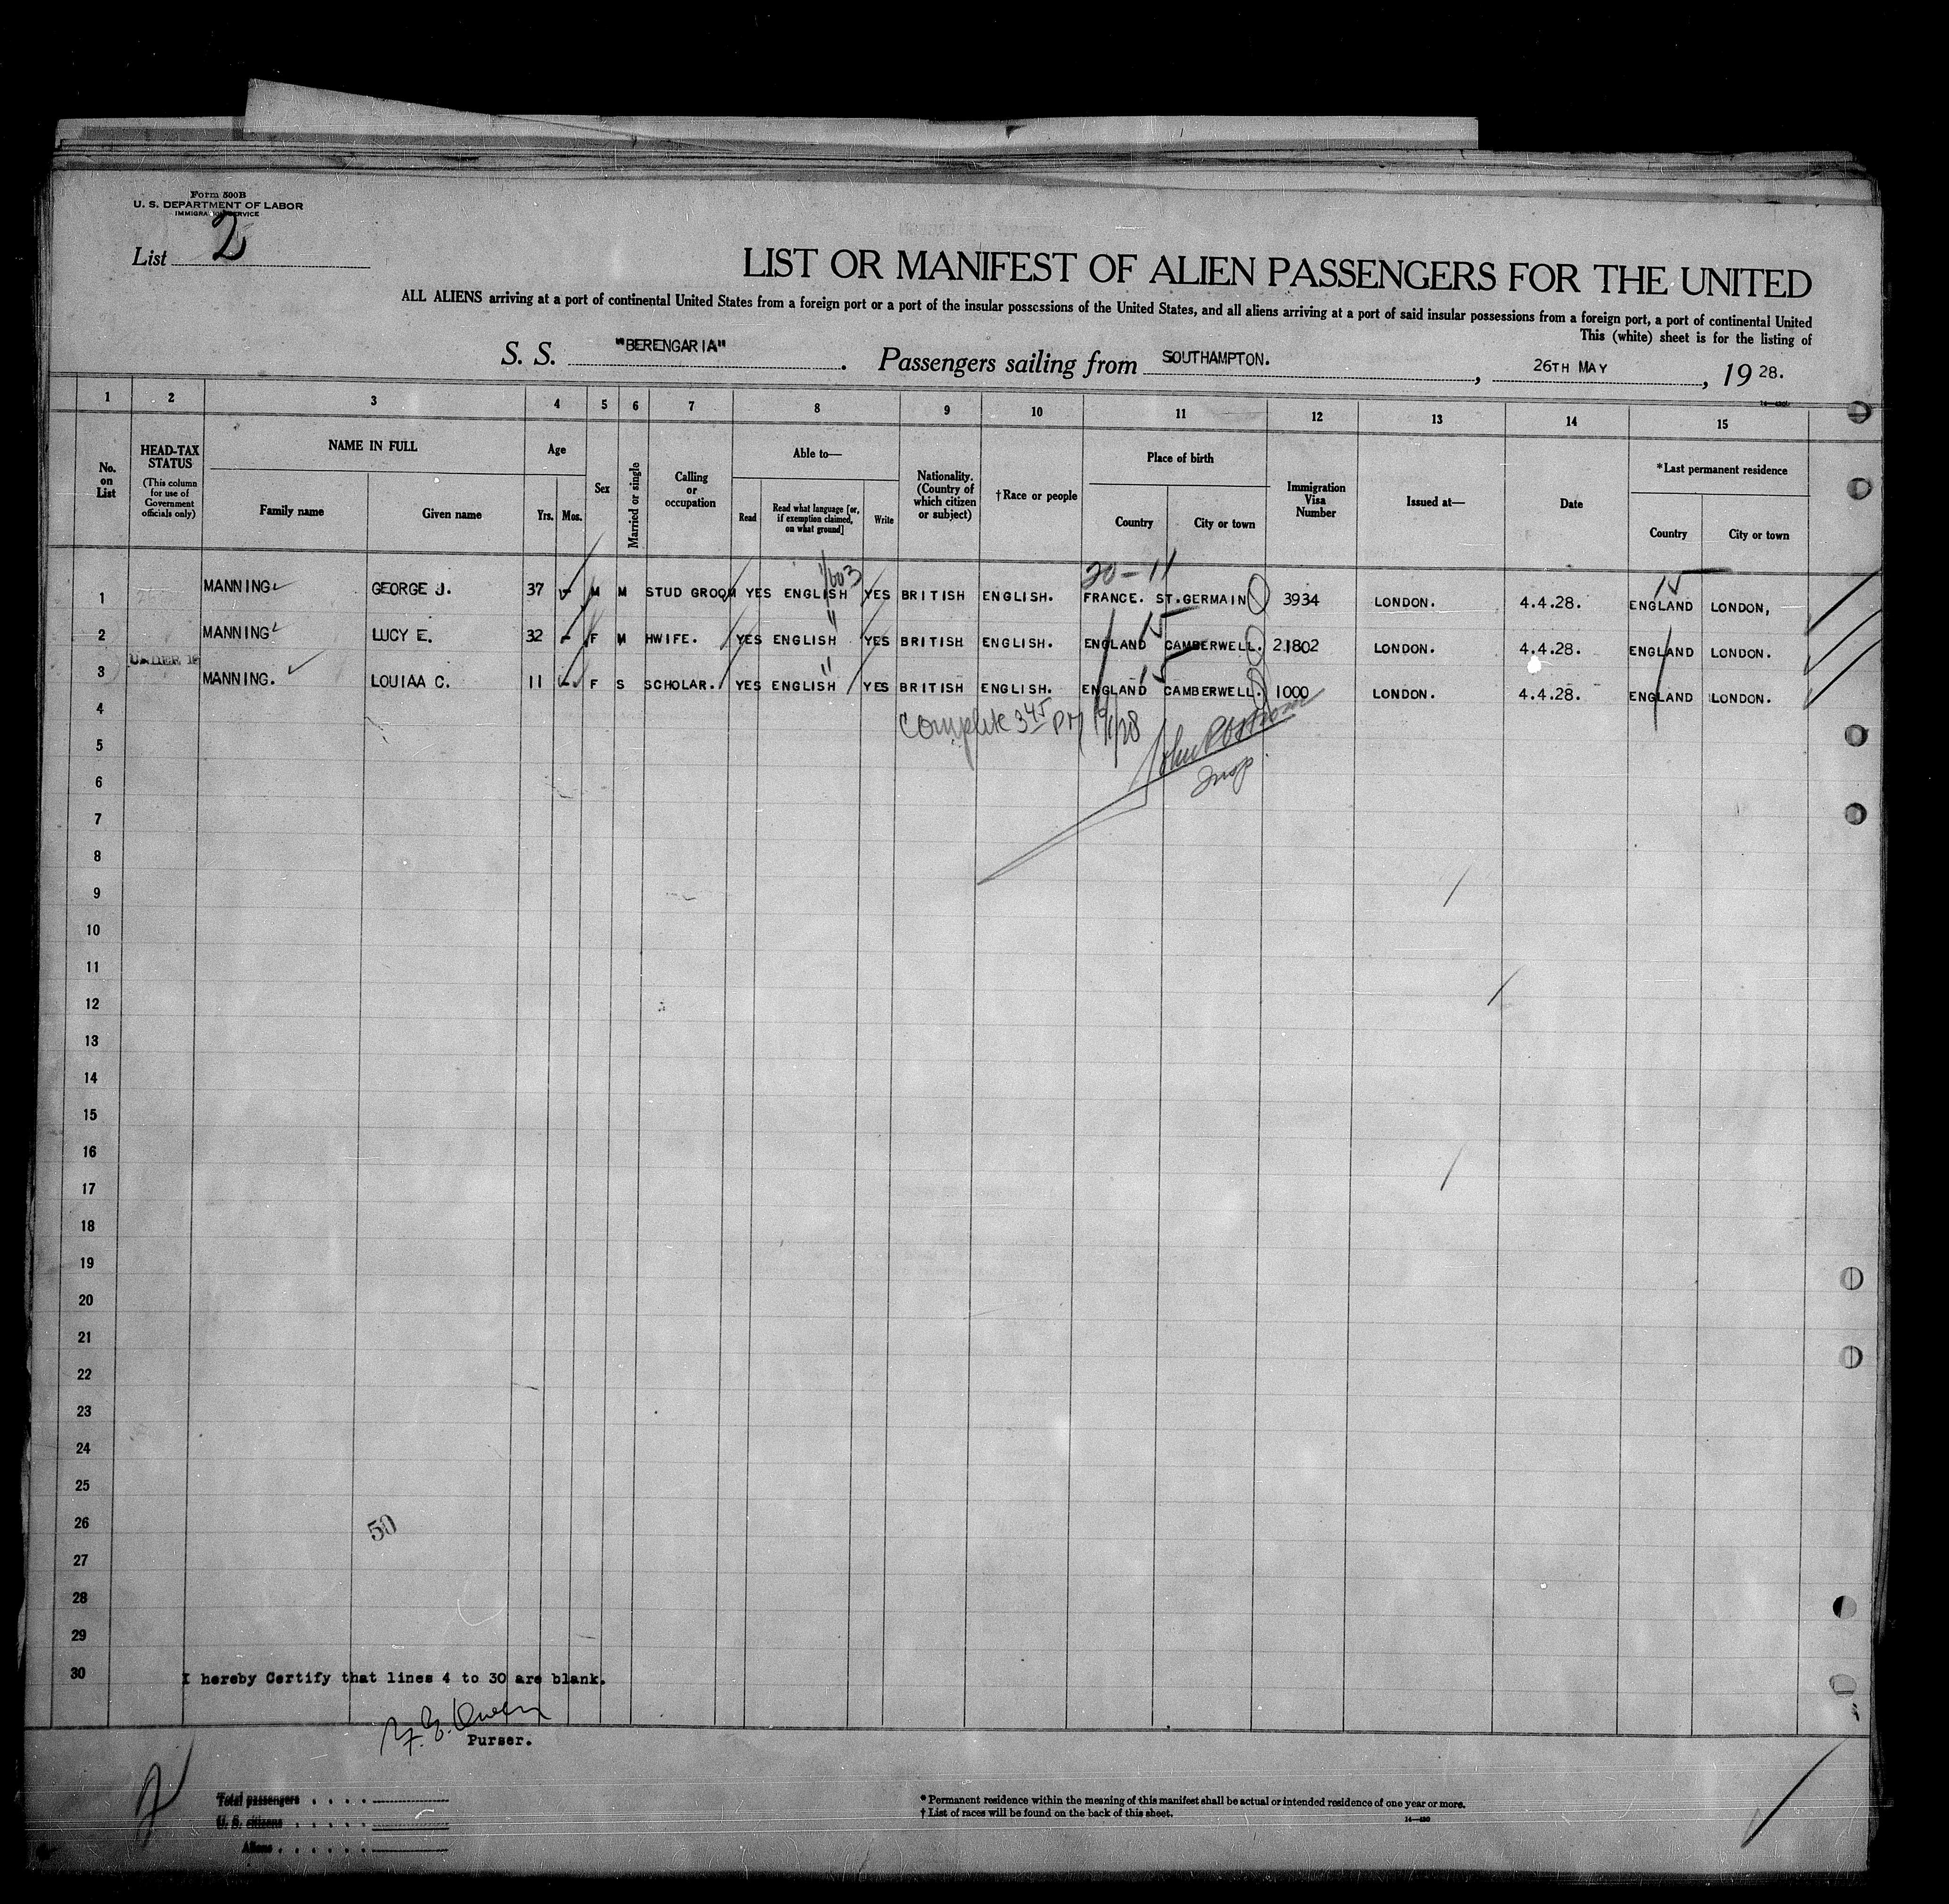 Form 500B
U. S. DEPARTMENT OF LABOR
IMMIGRATION SERVICE
List 2
LIST OR MANIFEST OF ALIEN PASSENGERS FOR THE UNITED
ALL ALIENS arriving at a port of continental United States from a foreign port or a port of the insular possessions of the United States, and all aliens arriving at a port of said insular possessions from a foreign port, a port of continental United
This (white) sheet is for the listing of
S. S. "BERENGARIA". Passengers sailing from SOUTHAMPTON. , 26TH MAY , 19 28.
1 2 3 4 5 6 7 8 9 10 11 12 13 14 15
No. on List
HEAD-TAX STATUS
(This column for use of Government officials only)
NAME IN FULL
Family name
Given name
Age
Yrs. Mos.
Sex
Married or single
Calling or occupation
Able to—
Read
Read what language [or, if exemption claimed, on what ground]
Write
Nationality. (Country of which citizen or subject)
†Race or people
Place of birth
Country
City or town
Immigration Visa Number
Issued at—
Date
*Last permanent residence
Country
City or town
1/603 20-11 15
1 MANNING GEORGE J. 37 - M M STUD GROOM YES ENGLISH YES BRITISH ENGLISH. FRANCE. ST.GERMAIN 3934 LONDON. 4.4.28. ENGLAND LONDON,
" 15
2 MANNING LUCY E. 32 - F M HWIFE. YES ENGLISH YES BRITISH ENGLISH. ENGLAND CAMBERWELL. 21802 LONDON. 4.4.28. ENGLAND LONDON.
UNDER 16 " 15
3 MANNING. LOUIAA C. 11 -. F S SCHOLAR. YES ENGLISH YES BRITISH ENGLISH. ENGLAND CAMBERWELL. 1000 LONDON. 4.4.28. ENGLAND LONDON.
4 Complete 3 45 PM
5
Insp.
6
7
8
9
10
11
12
13
14
15
16
17
18
19
20
21
22
23
24
25
26 50
27
28
29
30 I hereby Certify that lines 4 to 30 are blank.
Purser.
2
Total passengers
U. S. citizens
Aliens
* Permanent residence within the meaning of this manifest shall be actual or intended residence of one year or more.
† List of races will be found on the back of this sheet.